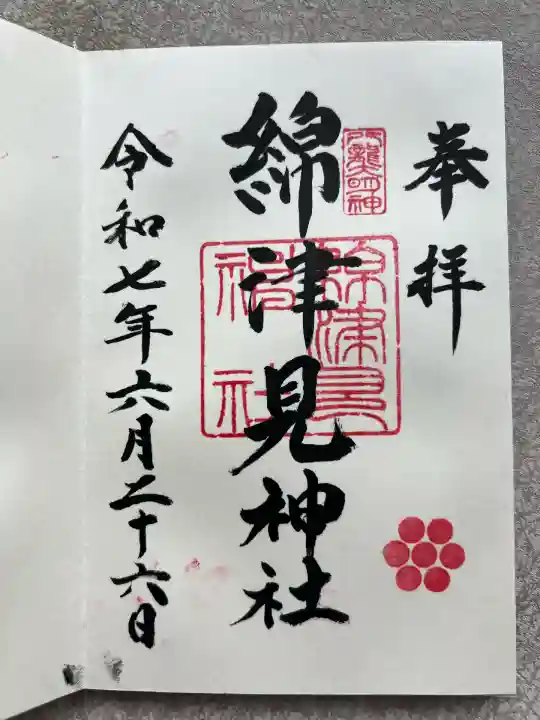 奉拝
八龍大明神
綿津見神社
綿津見神社
令和七年六月二十六日